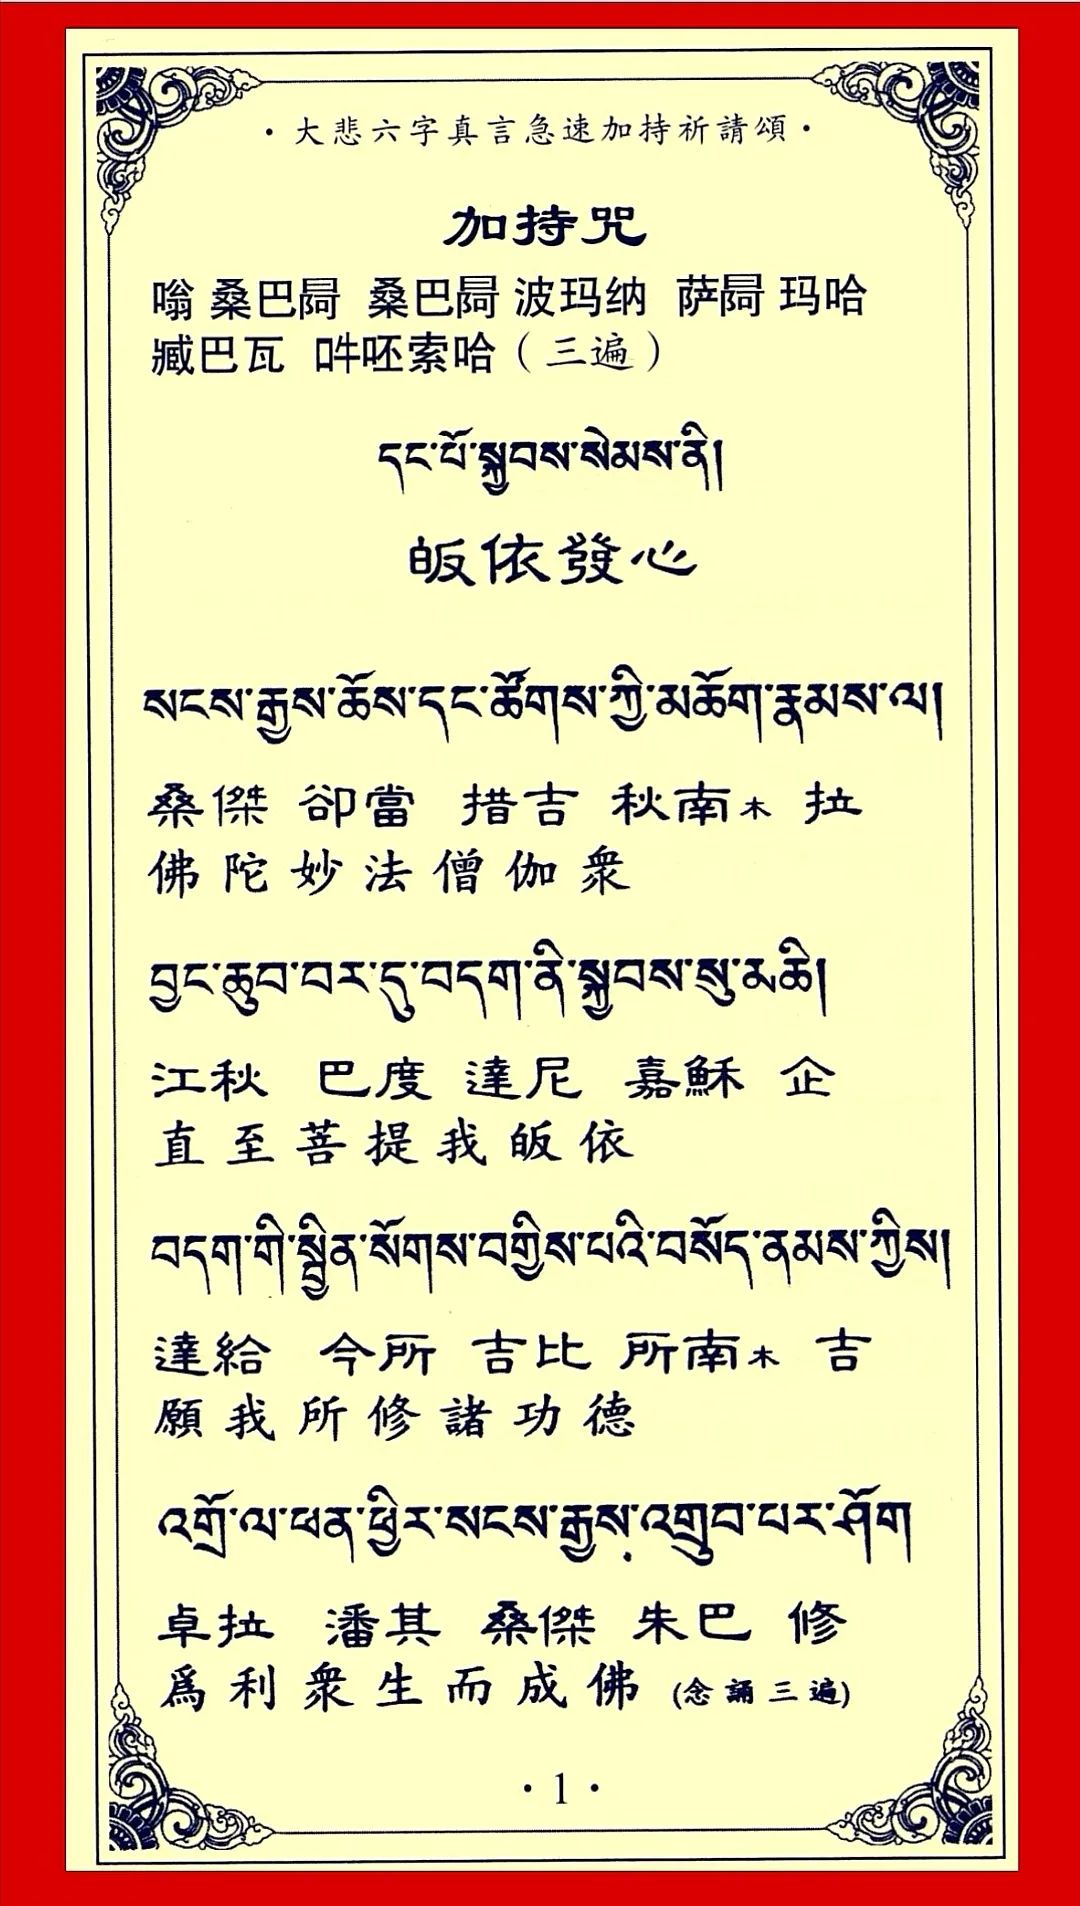 ·大悲六字真言急速加持祈請頌·
加持咒
嗡 桑巴 桑巴 波玛纳 萨 玛哈
臧巴瓦 吽呸索哈（三遍）
དང་པོ་སྐྱབས་སེམས་ནི།
皈依發心
སངས་རྒྱས་ཆོས་དང་ཚོགས་ཀྱི་མཆོག་རྣམས་ལ།
桑傑 卻當 措吉 秋南木 拉
佛陀妙法僧伽眾
བྱང་ཆུབ་བར་དུ་བདག་ནི་སྐྱབས་སུ་མཆི།
江秋 巴度 達尼 嘉穌 企
直至菩提我皈依
བདག་གི་སྦྱིན་སོགས་བགྱིས་པའི་བསོད་ནམས་ཀྱིས།
達給 今所 吉比 所南木 吉
願我所修諸功德
འགྲོ་ལ་ཕན་ཕྱིར་སངས་རྒྱས་འགྲུབ་པར་ཤོག
卓拉 潘其 桑傑 朱巴 修
爲利眾生而成佛 (念誦三遍)
·1·